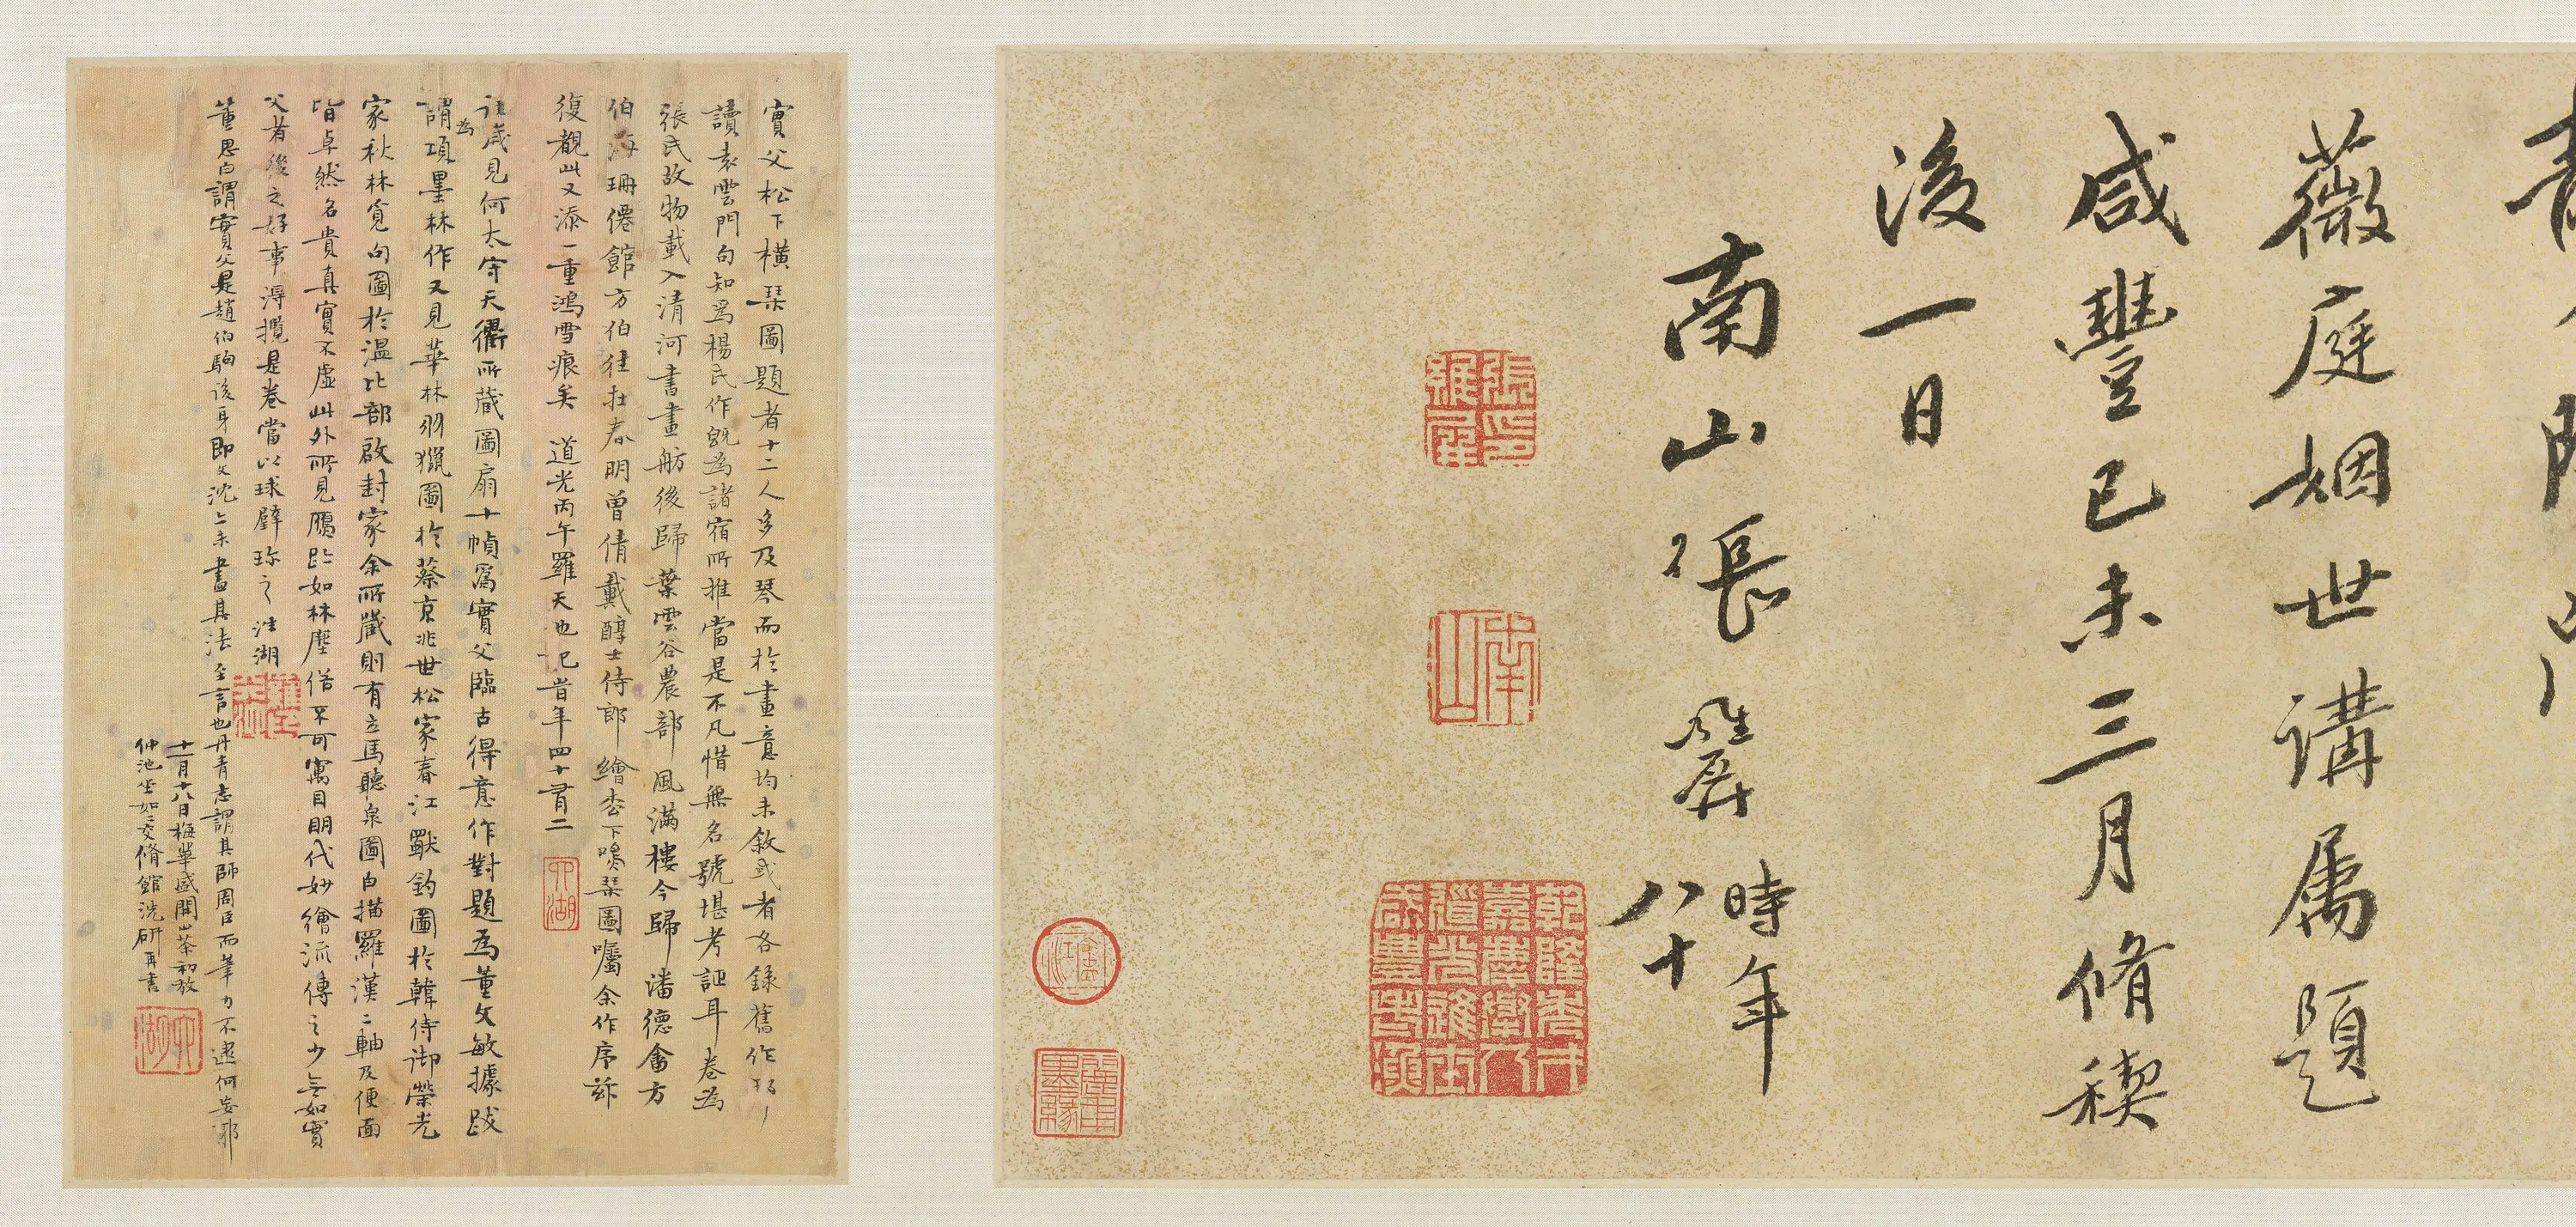 薇庭姻世講屬題
咸豐己未三月脩禊
後一日
南山張維屏時年
八十
張印維屏
南山
實父松下橫琹圖題者十二人多及琴而於畫意均未敘或者各錄舊作
讀袁雲門句知爲楊氏作旣為諸宿所推當是不凡惜無名號堪考証耳卷為
張氏故物載入清河書畫舫後歸葉雲谷農部風滿樓今歸潘德畬方
伯海珊僊館方伯往在春明曾倩戴醇士侍郎繪松下鳴琹圖囑余作序茲
復觀此又添一重鴻雪痕矣 道光丙午羅天池記旹年四十有二
六湖
往歲見何太守天衢所藏圖扇十幀爲實父臨古得意作對題為董文敏據跋
謂為項墨林作又見華林羽獵圖於蔡京兆世松家春江獸釣圖於韓侍御榮光
家秋林覓句圖於溫比部啟封家余所藏則有立馬聽泉圖白描羅漢二軸及便面
皆卓然名貴真實不虛此外所見贋跡如林塵俗不可寓目明代妙繪流傳之少無如實
父者後之好事得攬是卷當以球璧珍之 六湖
董思白謂實父是趙伯駒後身即文沈亦未盡其法至言也丹青志謂其師周臣而筆力不逮何妄邪
十一月十八日梅華盛開山茶初放
仲池坐如如交脩館洗研再書
六湖